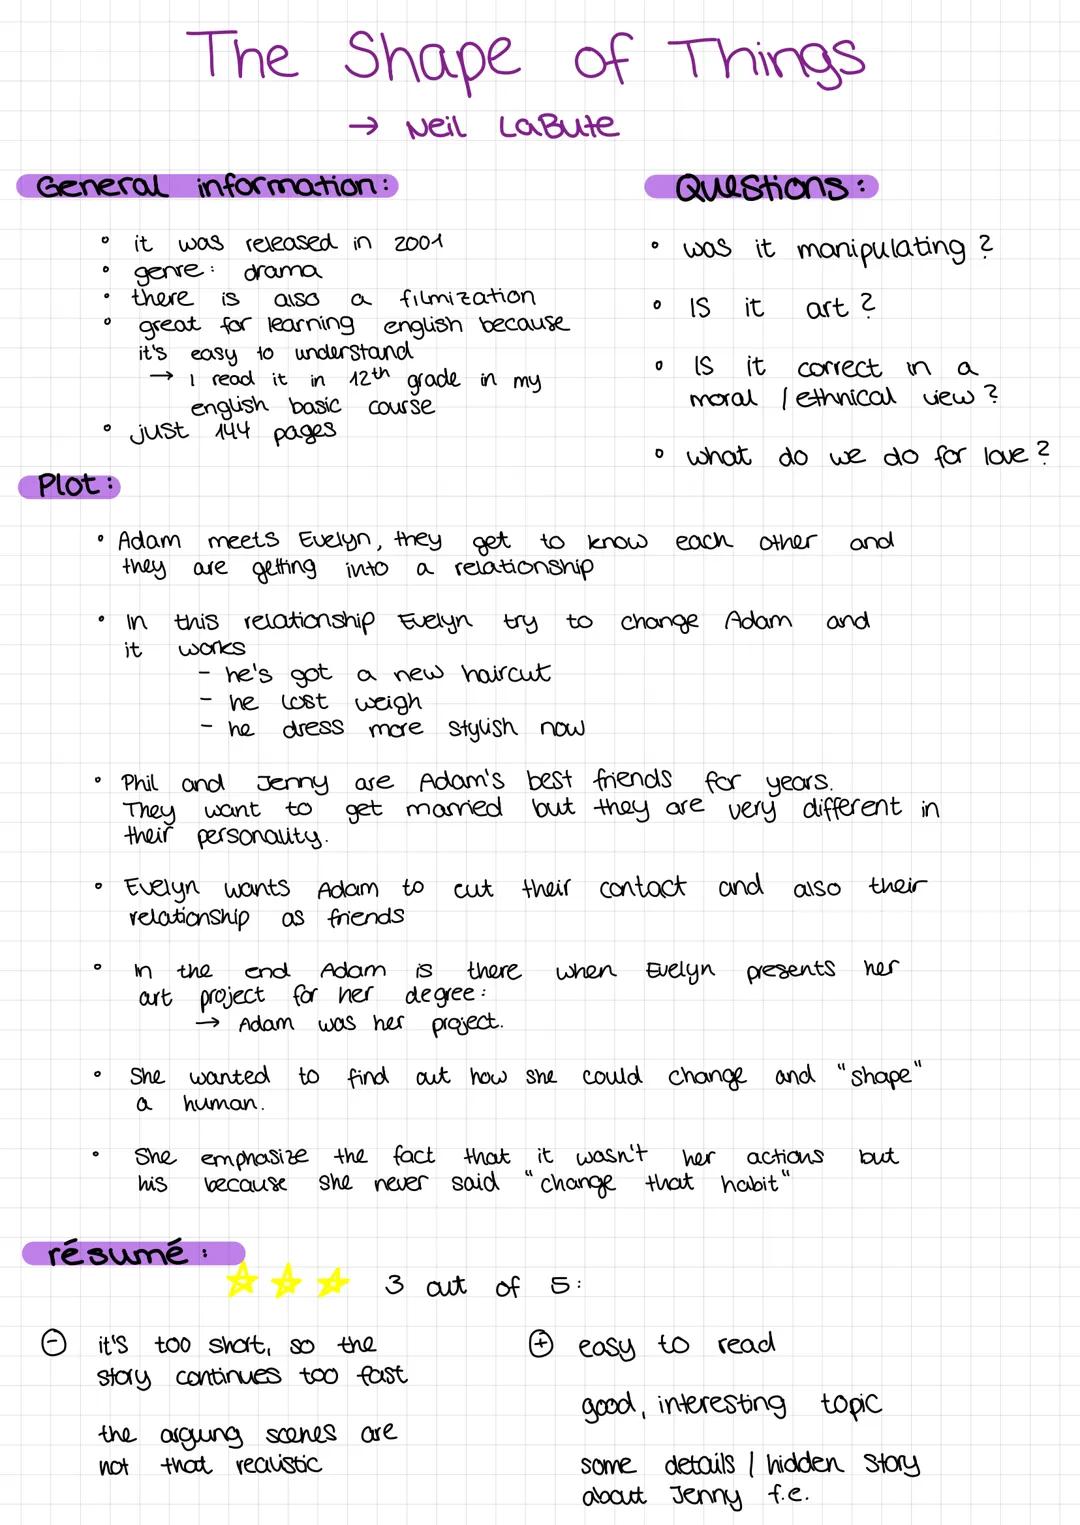 The Shape of Things
→ Neil LaBute
General information:
• it was released in 2001
• genre: drama
• there is also a filmization
• great for learning english because
it's easy to understand
→ I read it in 12th grade in my
english basic course
• just 144 pages
Questions:
• was it manipulating?
• IS it art?
• IS it correct in a
moral / ethnical view?
• what do we do for love?
Plot:
• Adam meets Evelyn, they get to know each other and
they are getting into a relationship
• In this relationship Evelyn try to change Adam and
it works
- he's got a new haircut
- he lost weigh
- he dress more stylish now
• Phil and Jenny are Adam's best friends for years.
They want to get married but they are very different in
their personality.
• Evelyn wants Adam to cut their contact and also their
relationship as friends
• In the end Adam is there when Evelyn presents her
art project for her degree:
→ Adam was her project.
• She wanted to find out how she could change and "shape"
a human.
• She emphasize the fact that it wasn't her actions but
his because she never said "change that habit"
résumé:
3 out of 5:
⊖ it's too short, so the
story continues too fast
the arguing scenes are
not that realistic
⊕ easy to read
good, interesting topic
some details / hidden story
about Jenny f.e.